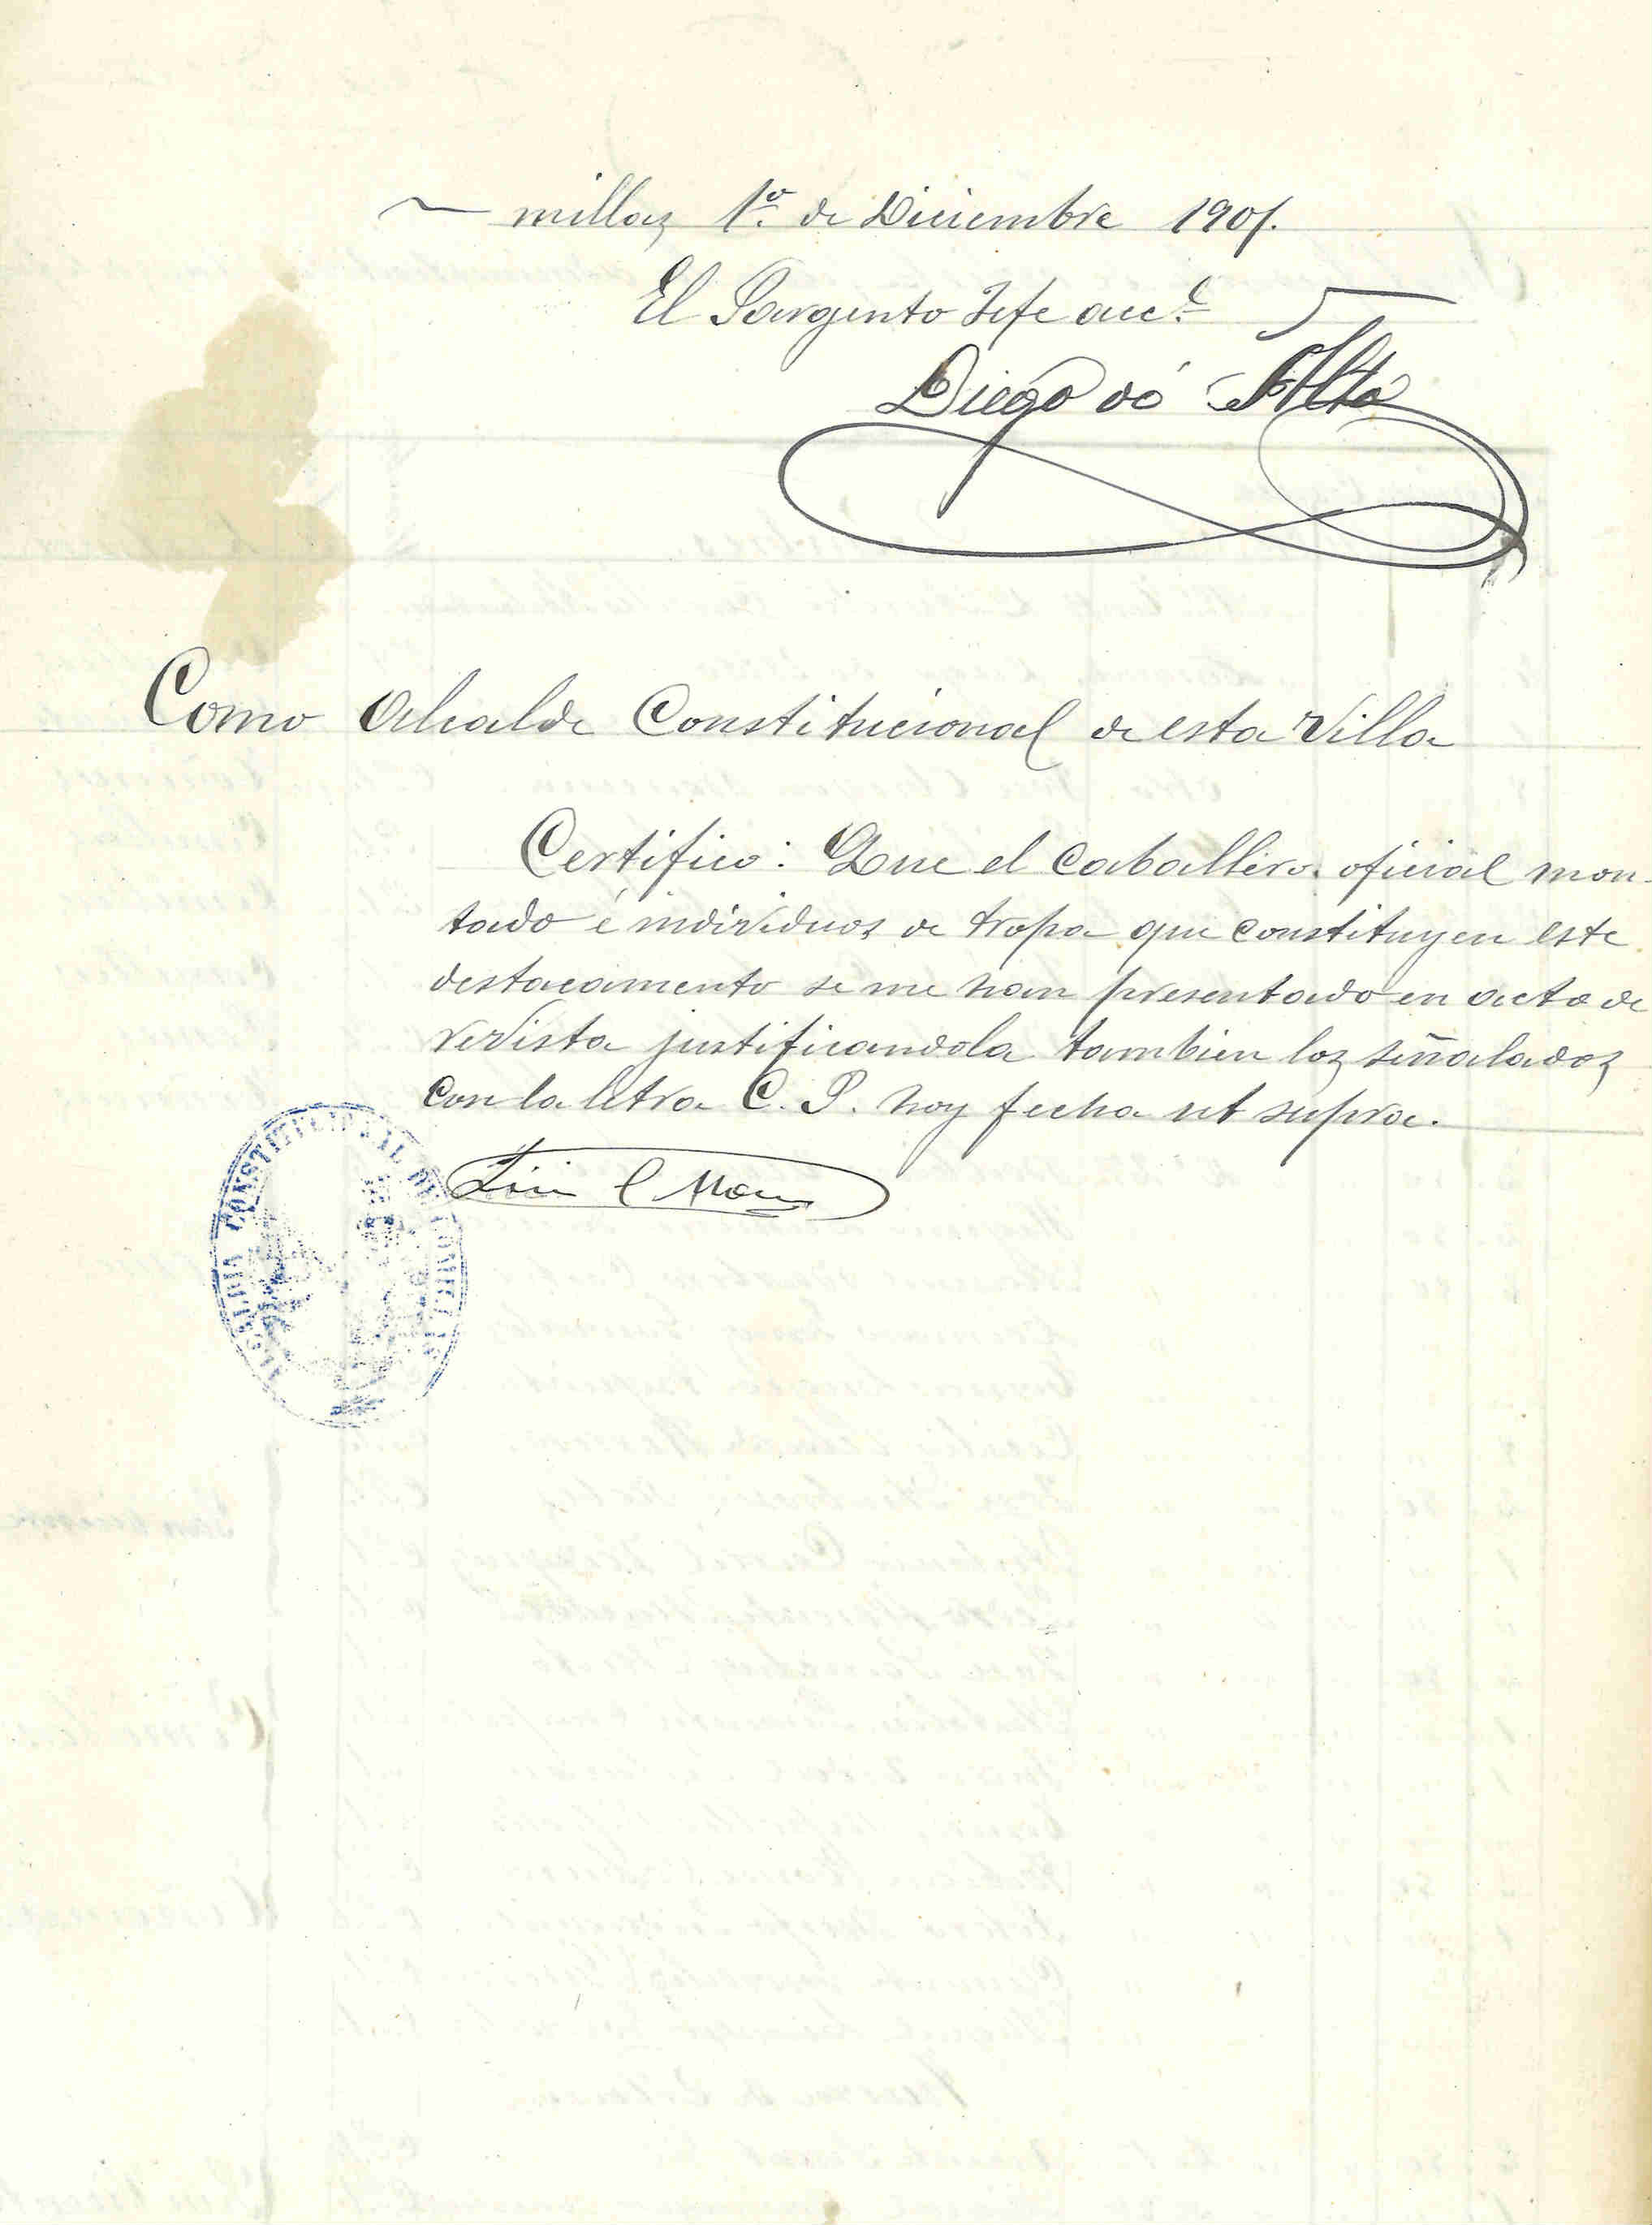 millas 1º de Diciembre 1901.
El Sargento Jefe acc.l
Diego
Como Alcalde Constitucional de esta Villa
Certifico: Que el Caballero oficial mon-
tado é individuos de tropa que constituyen este
destacamento se me han presentado en acto de
revista justificandola tambien los señalados
con la letra C. P. hoy fecha ut supra.
ALCALDIA CONSTITUCIONAL DE